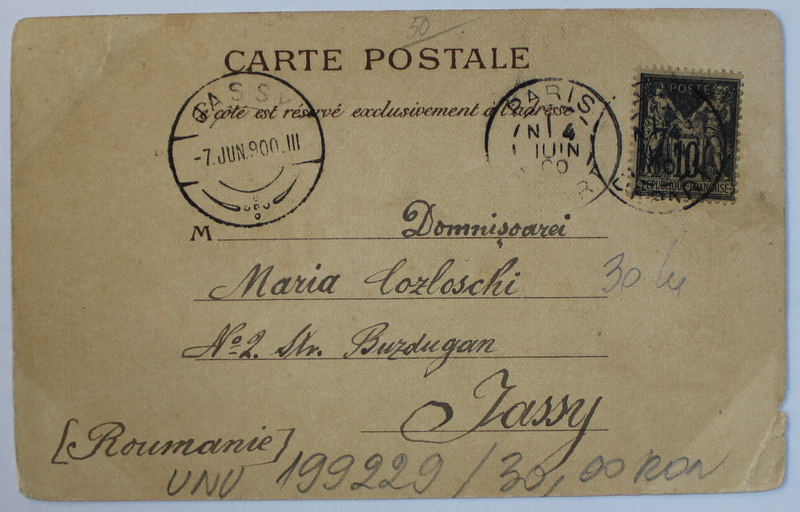 50
CARTE POSTALE
Ce côté est réservé exclusivement à l'adresse
JASSY
-7.JUN.900.III
PARIS
4
JUIN
00
POSTE
10
REPUBLIQUE FRANÇAISE
M Domnișoarei
Maria Cozloschi
30 lei
No 2. Str. Buzdugan
Jassy
[Roumanie]
UNU 199229 / 30,00 RON